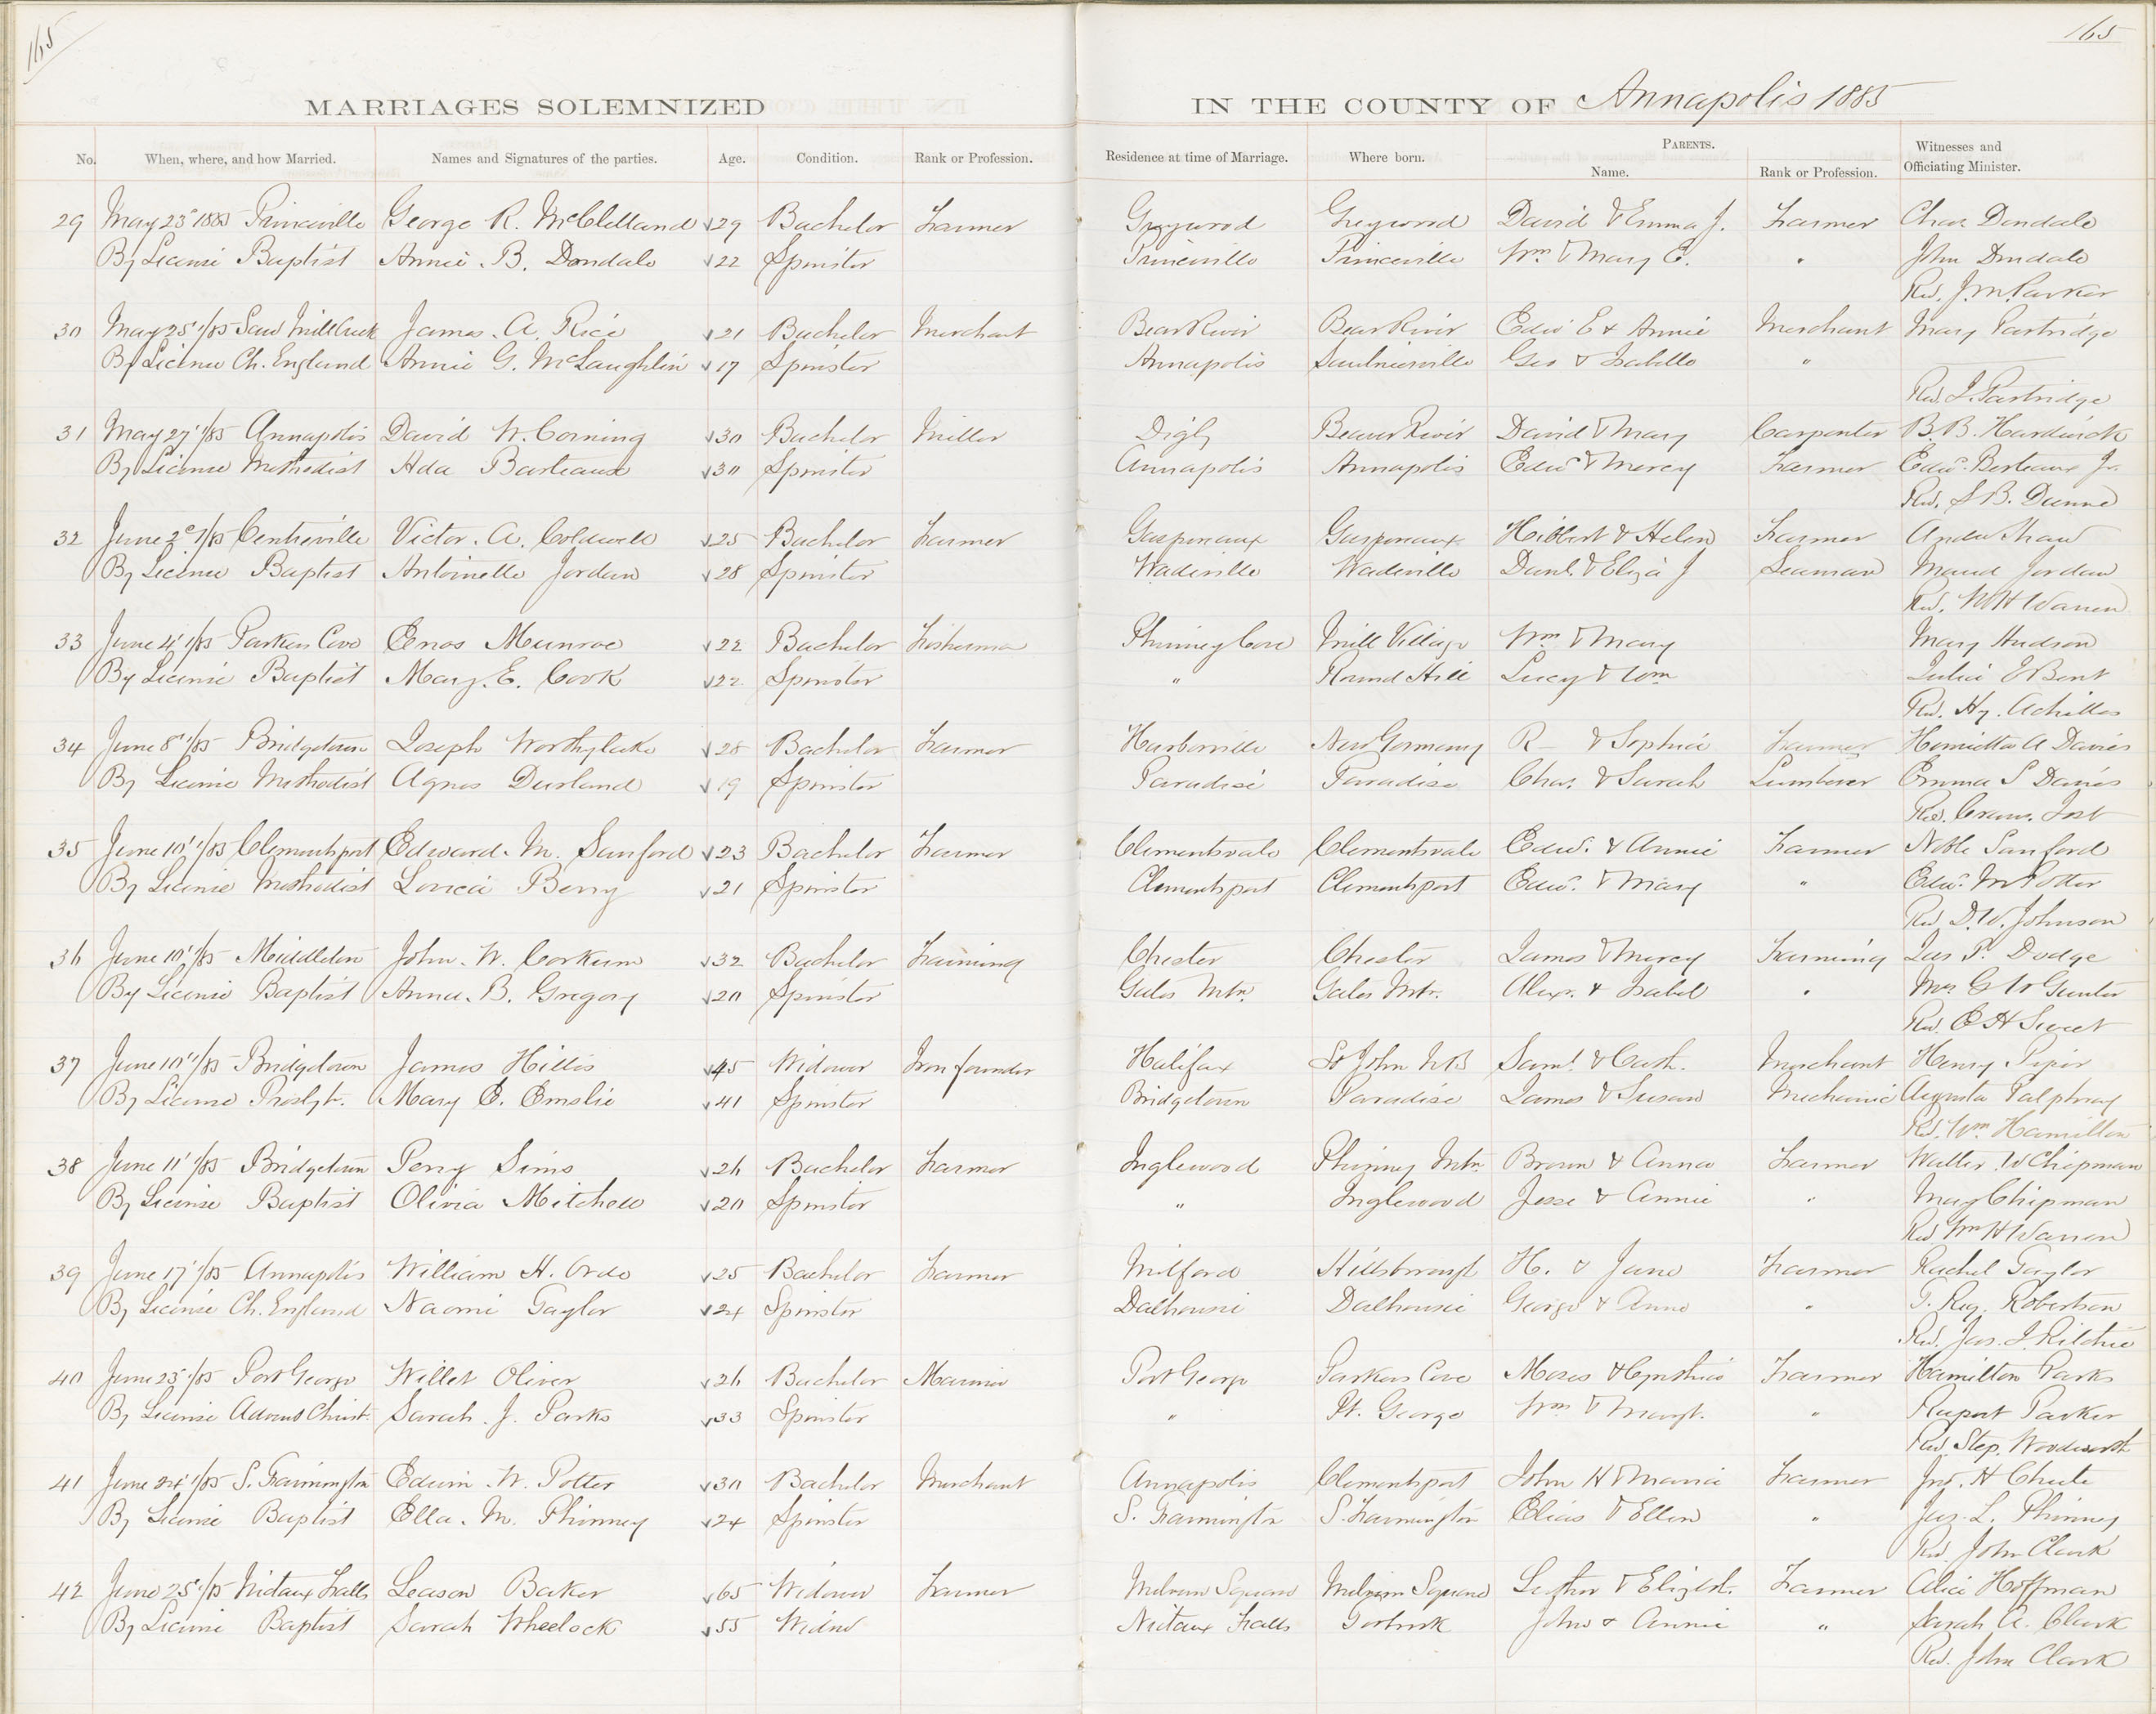 165
165
MARRIAGES SOLEMNIZED IN THE COUNTY OF Annapolis 1885
No. When, where, and how Married. Names and Signatures of the parties. Age. Condition. Rank or Profession. Residence at time of Marriage. Where born. PARENTS. Name. Rank or Profession. Witnesses and Officiating Minister.
29 May 23 1885 Princeville George R. McClelland 29 Bachelor Farmer Greywood Greywood David & Emma J. Farmer Chas Dondale
By License Baptist Annie B. Dondale 22 Spinster Princeville Princeville Wm & Mary E. " John Dondale
Rev. J. M. Parker
30 May 25 '/85 Saw Mill Creek James A. Rice 21 Bachelor Merchant Bear River Bear River Edw E & Annie Merchant Mary Partridge
By License Ch. England Annie G. McLaughlin 17 Spinster Annapolis Saulnierville Geo & Isabella "
Rev. J. Partridge
31 May 27 '/85 Annapolis David W. Corning 30 Bachelor Miller Digby Beaver River David & Mary Carpenter B. B. Hardwick
By License Methodist Ada Barteaux 30 Spinster Annapolis Annapolis Edwd & Mercy Farmer Edwd. Berteaux Jr.
Rev. S B. Dunne
32 June 2 '/85 Centreville Victor A. Coldwell 25 Bachelor Farmer Gaspereaux Gaspereaux Hibbert & Helen Farmer Andw Shaw
By License Baptist Antoinette Jordan 28 Spinster Wadeville Wadeville Danl. & Eliza J Seaman Maud Jordan
Rev. W H Warren
33 June 4 '/85 Parkers Cove Enos Munroe 22 Bachelor Fisherman Phinney Cove Mill Village Wm & Mary Mary Hudson
By License Baptist Mary E. Cook 22 Spinster " Round Hill Lucy & Wm Julia E Bent
Rev. Hy. Achilles
34 June 8 '/85 Bridgetown Joseph Worthylake 28 Bachelor Farmer Harborville New Germany R— & Sophia Farmer Henrietta A Davies
By License Methodist Agnes Durland 19 Spinster Paradise Paradise Chas. & Sarah Lumberer Emma S Davies
Rev. Jost
35 June 10 '/85 Clementsport Edward M. Sanford 23 Bachelor Farmer Clementsvale Clementsvale Edw. & Annie Farmer Noble Sanford
By License Methodist Berry 21 Spinster Clementsport Clementsport Edw. & Mary " Edw. M Potter
Rev D. W. Johnson
36 June 10 '/85 Middleton John W. Corkum 32 Bachelor Farming Chester Chester James & Mercy Farming Jas P. Dodge
By License Baptist Anna B. Gregory 20 Spinster Gates Mtn. Gates Mtn. Alexr. & Isabel " Mrs G W Gunter
Rev. E H Sweet
37 June 10 '/85 Bridgetown James Hillis 45 Widower Iron founder Halifax St John NB Saml. & Cath. Merchant Henry Piper
By License Presbyt. Mary E. Emslie 41 Spinster Bridgetown Paradise James & Susan Mechanic Augusta Palphrey
Rev. Wm. Hamilton
38 June 11 '/85 Bridgetown Perry Sims 26 Bachelor Farmer Inglewood Phinney Mtn Brown & Anna Farmer Walter W Chipman
By License Baptist Olivia Mitchell 20 Spinster " Inglewood Jesse & Annie " Mary Chipman
Rev Wm H Warren
39 June 17 '/85 Annapolis William H. Orde 25 Bachelor Farmer Milford Hillsborough H. & Jane Farmer Rachel Taylor
By License Ch. England Naomi Taylor 24 Spinster Dalhousie Dalhousie George & Anne " T. Reg. Robertson
Rev. Jas. J. Ritchie
40 June 23 '/85 Port George Willet Oliver 26 Bachelor Mariner Port George Parkers Cove Moses & Cynthia Farmer Hamilton Parks
By License Advent Christ. Sarah J. Parks 33 Spinster " Pt. George Wm & Margt. " Rupert Parker
Rev. Step. Woodworth
41 June 24 '/85 S. Farmington Edwin W. Potter 30 Bachelor Merchant Annapolis Clementsport John H & Maria Farmer Jno. H Chute
By License Baptist Ella M. Phinney 24 Spinster S. Farmington S. Farmington Elias & Ellen " Jas. L. Phinney
Rev. John Clark
42 June 25 '/85 Nictaux Falls Leason Baker 65 Widower Farmer Melvern Square Melvern Square & Elizbt. Farmer Alice Hoffman
By License Baptist Sarah Wheelock 55 Widow Nictaux Falls Torbrook John & Annie " Sarah A. Clark
Rev. John Clark